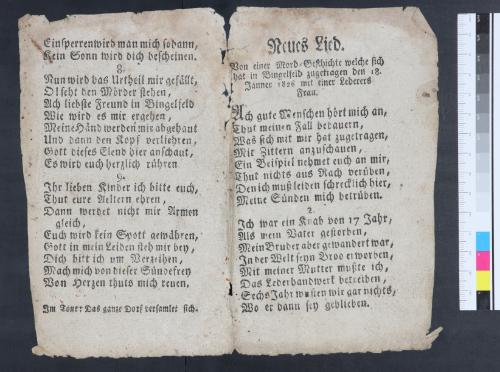 Einsperren wird man mich sodann,
Kein Sonn wird dich bescheinen.
8.
Nun wird das Urtheil mir gefällt,
O! seht den Mörder stehen,
Ach liebste Freund in Bingelfeld
Wie wird es mir ergehen,
Meine Händ werden mir abgehaut
Und dann den Kopf verliehren,
Gott dieses Elend hier anschaut,
Es wird euch herzlich rühren
9.
Ihr lieben Kinder ich bitte euch,
Thut eure Aeltern ehren,
Dann werdet nicht mir Armen
gleich,
Euch wird kein Spott gewähren,
Gott in mein Leiden steh mir bey,
Dich bitt ich um Verzeihen,
Mach mich von dieser Sünde frey
Von Herzen thuts mich reuen,
Im Das ganze Dorf versamlet sich.
Neues Lied.
Von einer Mord-Geschichte welche sich
hat in Bingelfeld zugetragen den 18.
Jänner 1826 mit einer Lederers
Frau.
Ach gute Menschen hört mich an,
Thut meinen Fall bedauern,
Was sich mit mir hat zugetragen,
Mit Zittern anzuschauen,
Ein Beispiel nehmet euch an mir,
Thut nichts aus Rach verüben,
Den ich muß leiden schrecklich hier,
Meine Sünden mich betrüben.
2.
Ich war ein Knab von 17 Jahr,
Als mein Vater gestorben,
Mein Bruder aber gewandert war,
In der Welt seyn Brod erworben,
Mit meiner Mutter mußte ich,
Das Lederhandwerk betreiben,
Sechs Jahr wusten wir gar nichts,
Wo er dann sey geblieben.